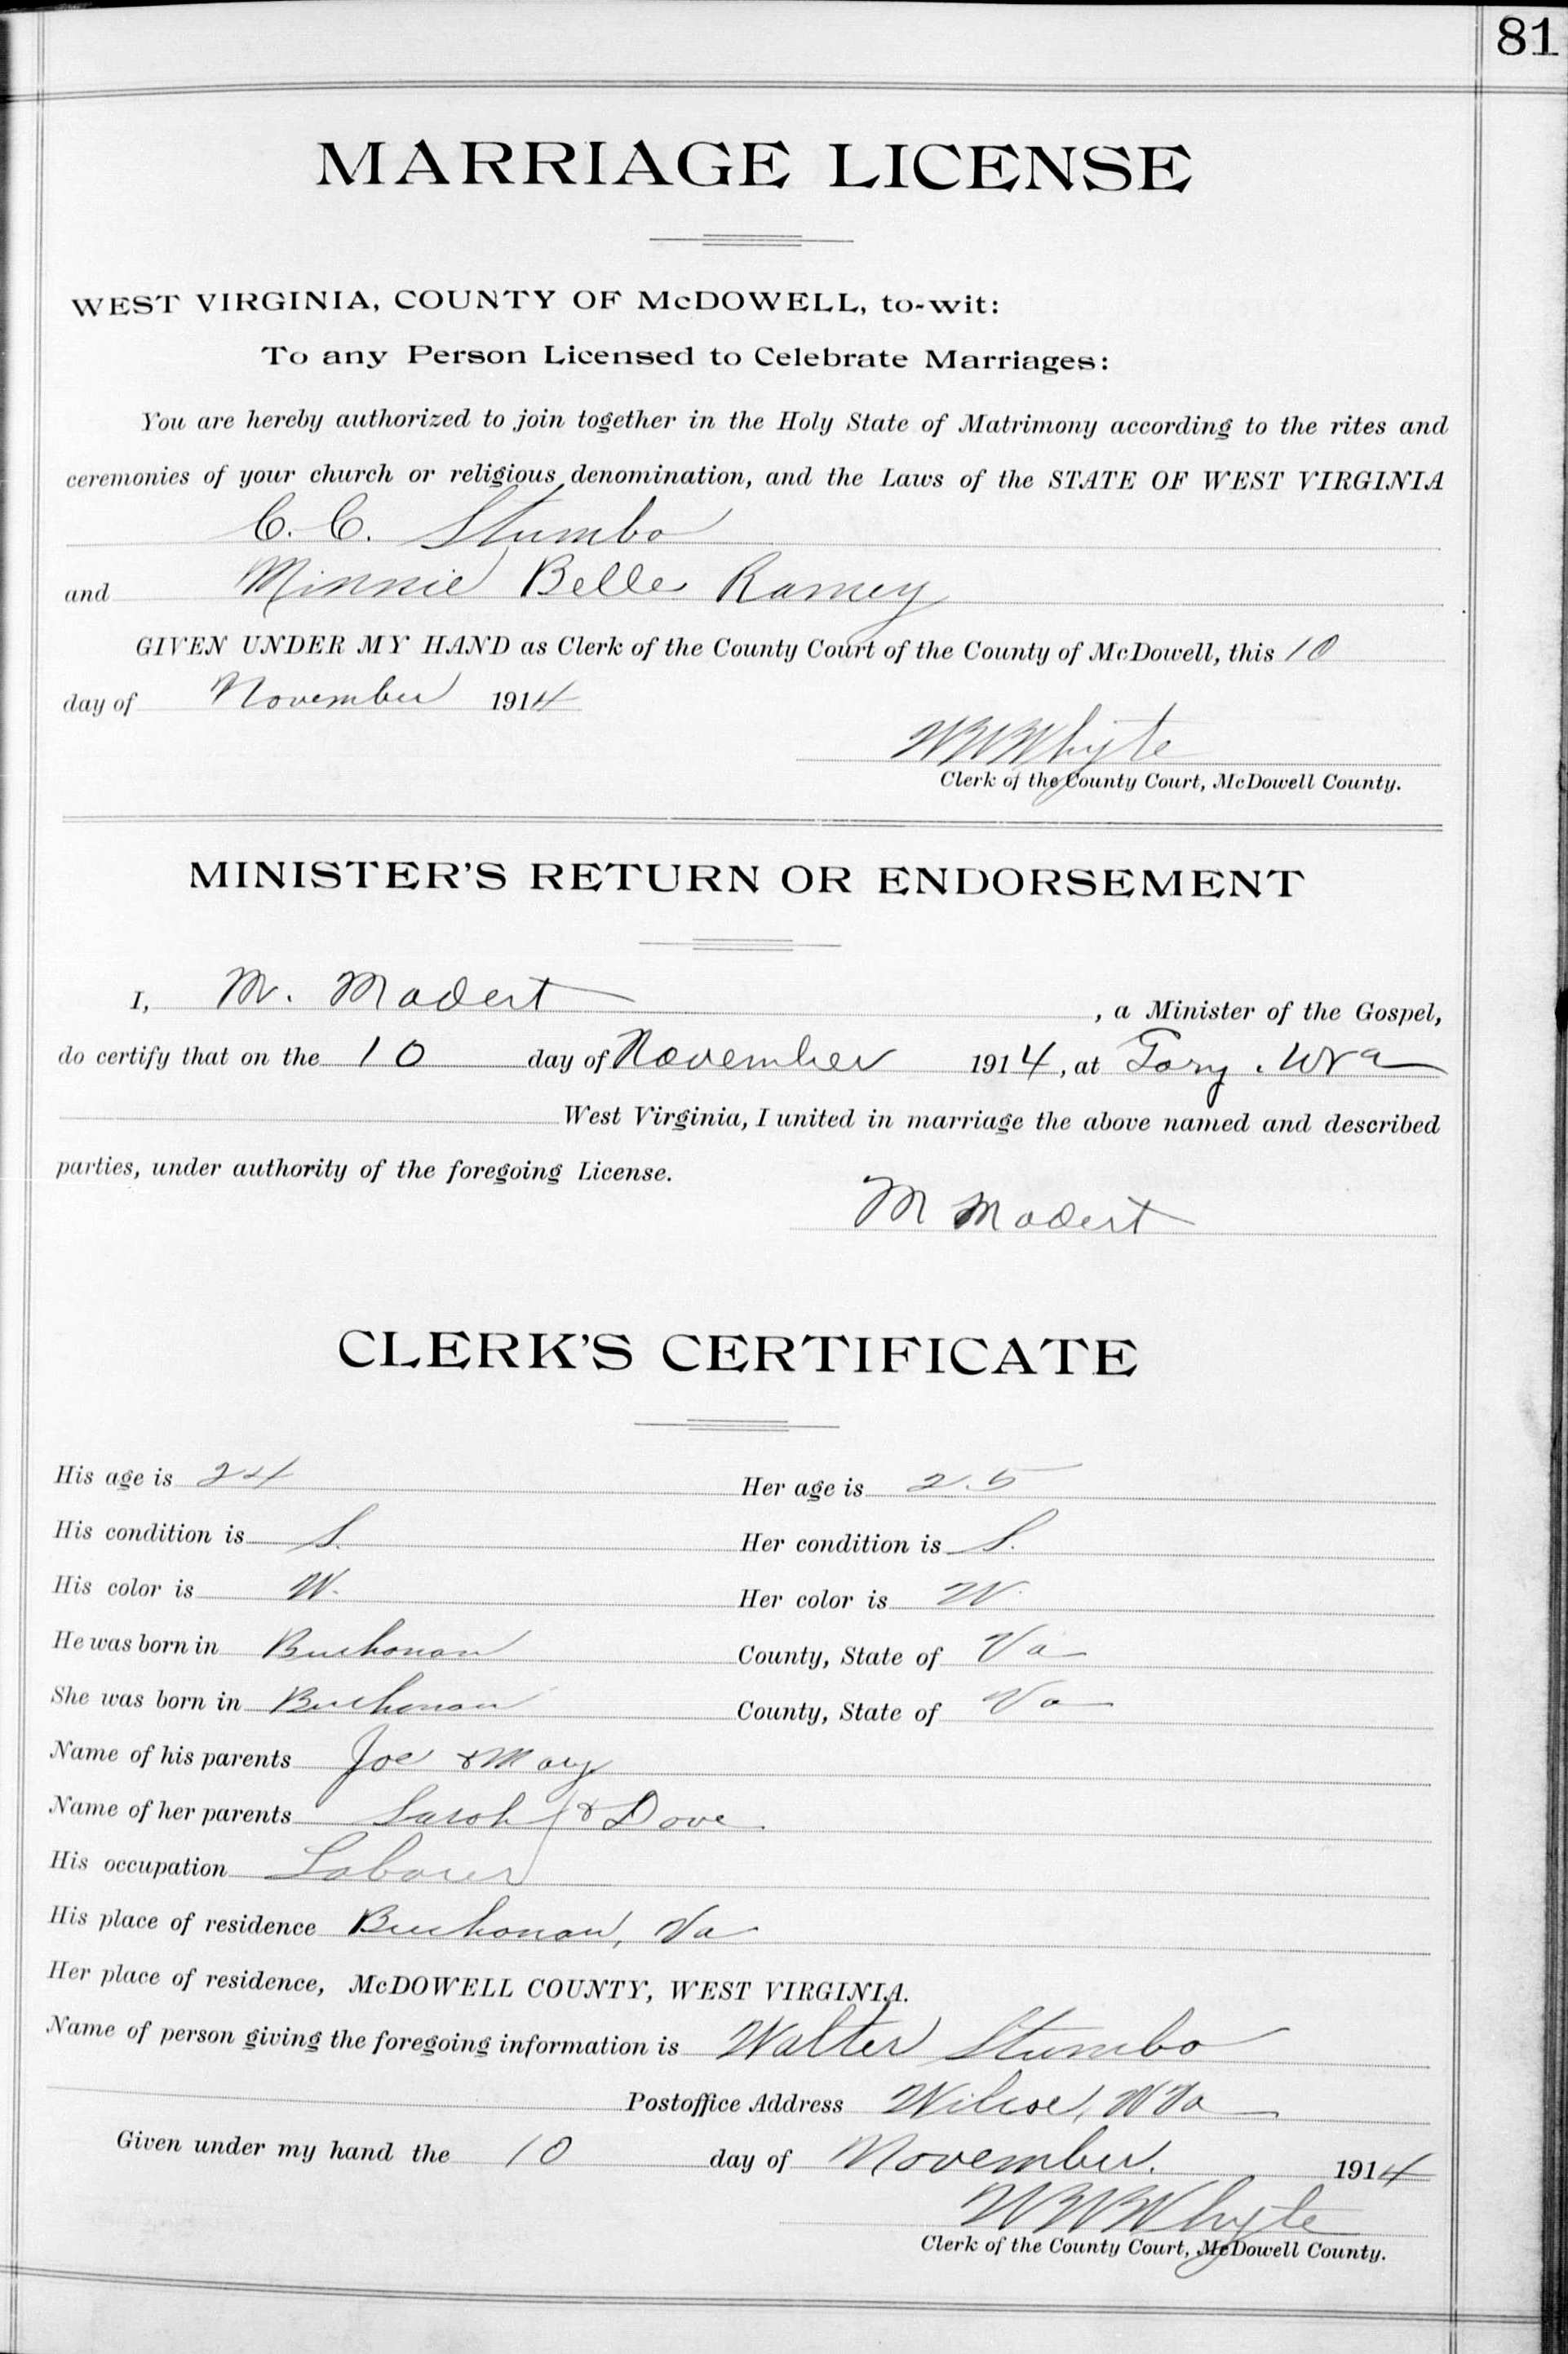 81
MARRIAGE LICENSE
WEST VIRGINIA, COUNTY OF McDOWELL, to-wit:
To any Person Licensed to Celebrate Marriages:
You are hereby authorized to join together in the Holy State of Matrimony according to the rites and
ceremonies of your church or religious denomination, and the Laws of the STATE OF WEST VIRGINIA
C. C. Stumbo
and Minnie Belle Ramey
GIVEN UNDER MY HAND as Clerk of the County Court of the County of McDowell, this 10
day of November 1914
Whyte
Clerk of the County Court, McDowell County.
MINISTER'S RETURN OR ENDORSEMENT
I, M. Madert, a Minister of the Gospel,
do certify that on the 10 day of November 1914, at Gary. Wva
West Virginia, I united in marriage the above named and described
parties, under authority of the foregoing License.
M Madert
CLERK'S CERTIFICATE
His age is 24 Her age is 25
His condition is S. Her condition is S.
His color is W. Her color is W.
He was born in Buchanan County, State of Va
She was born in Buchanan County, State of Va
Name of his parents Joe & Mary
Name of her parents Sarah & Dave
His occupation Laborer
His place of residence Buchanan, Va
Her place of residence, McDOWELL COUNTY, WEST VIRGINIA.
Name of person giving the foregoing information is Walter Stumbo
Postoffice Address Wilcoe, W Va
Given under my hand the 10 day of November. 1914
Whyte
Clerk of the County Court, McDowell County.